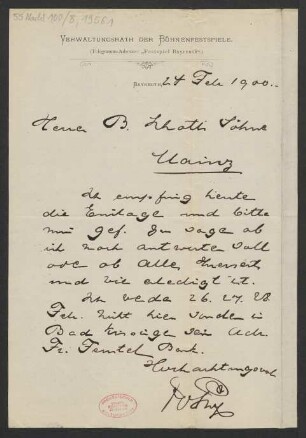 55 Nachl 100/B, 1956,1
VERWALTUNGSRATH DER BÜHNENFESTSPIELE.
(Telegramm-Adresse: „Festspiel Bayreuth“.)
BAYREUTH, 24 Feb 1900.
Herrn B. Schott's Söhne
Mainz
Ich empfing heute
die Einlage und bitte
mir gef. zu sagen ob
ich noch antworten soll
oder ob Alles
und wie erledigt ist.
Ich werde 26. 27. 28
Feb. nicht hier sondern in
Bad Kissingen sein Adr.
Fr. Feustel Bank.
Hochachtungsvoll